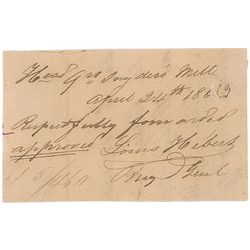 Head Qrs Snyder's Mill
April 24th 1863
Respectfully forwarded
approved Louis Hebert
Brig Genl